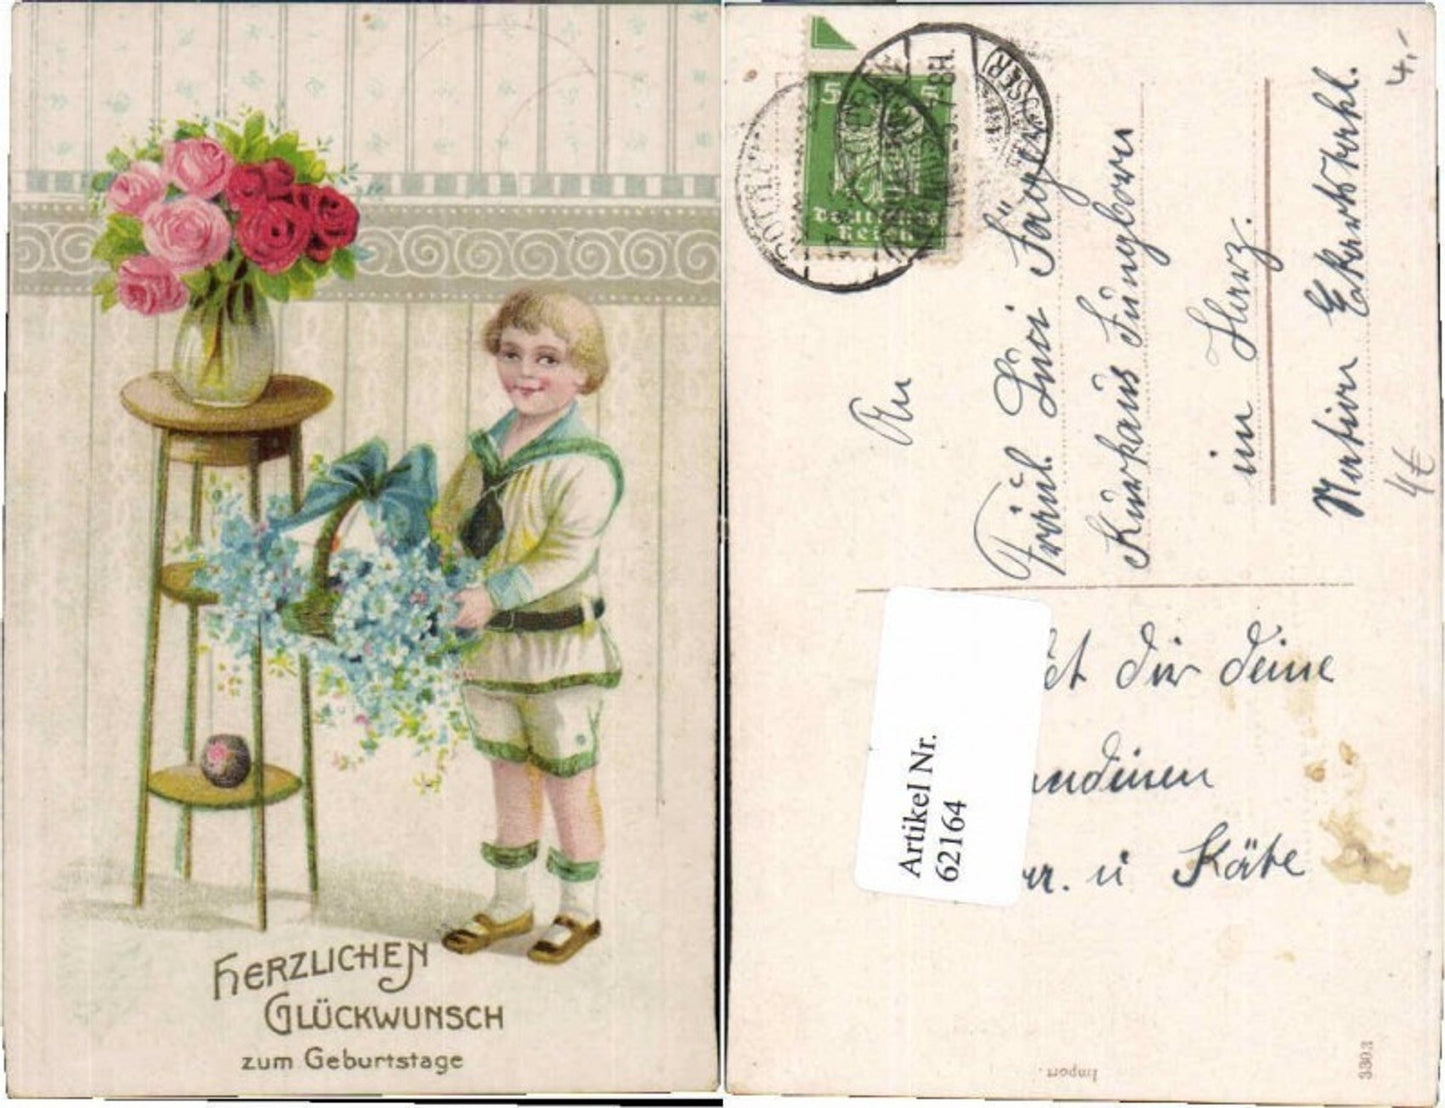 HERZLICHEN
GLÜCKWUNSCH
zum Geburtstage
5 5
Deutsches
Reich
An
Fräul. Luci Jäger
Kurhaus Jungborn
im Harz.
Station Eckertal.
4,-
4€
dir deine
u Käte
Artikel Nr.
62164
Import.
3303